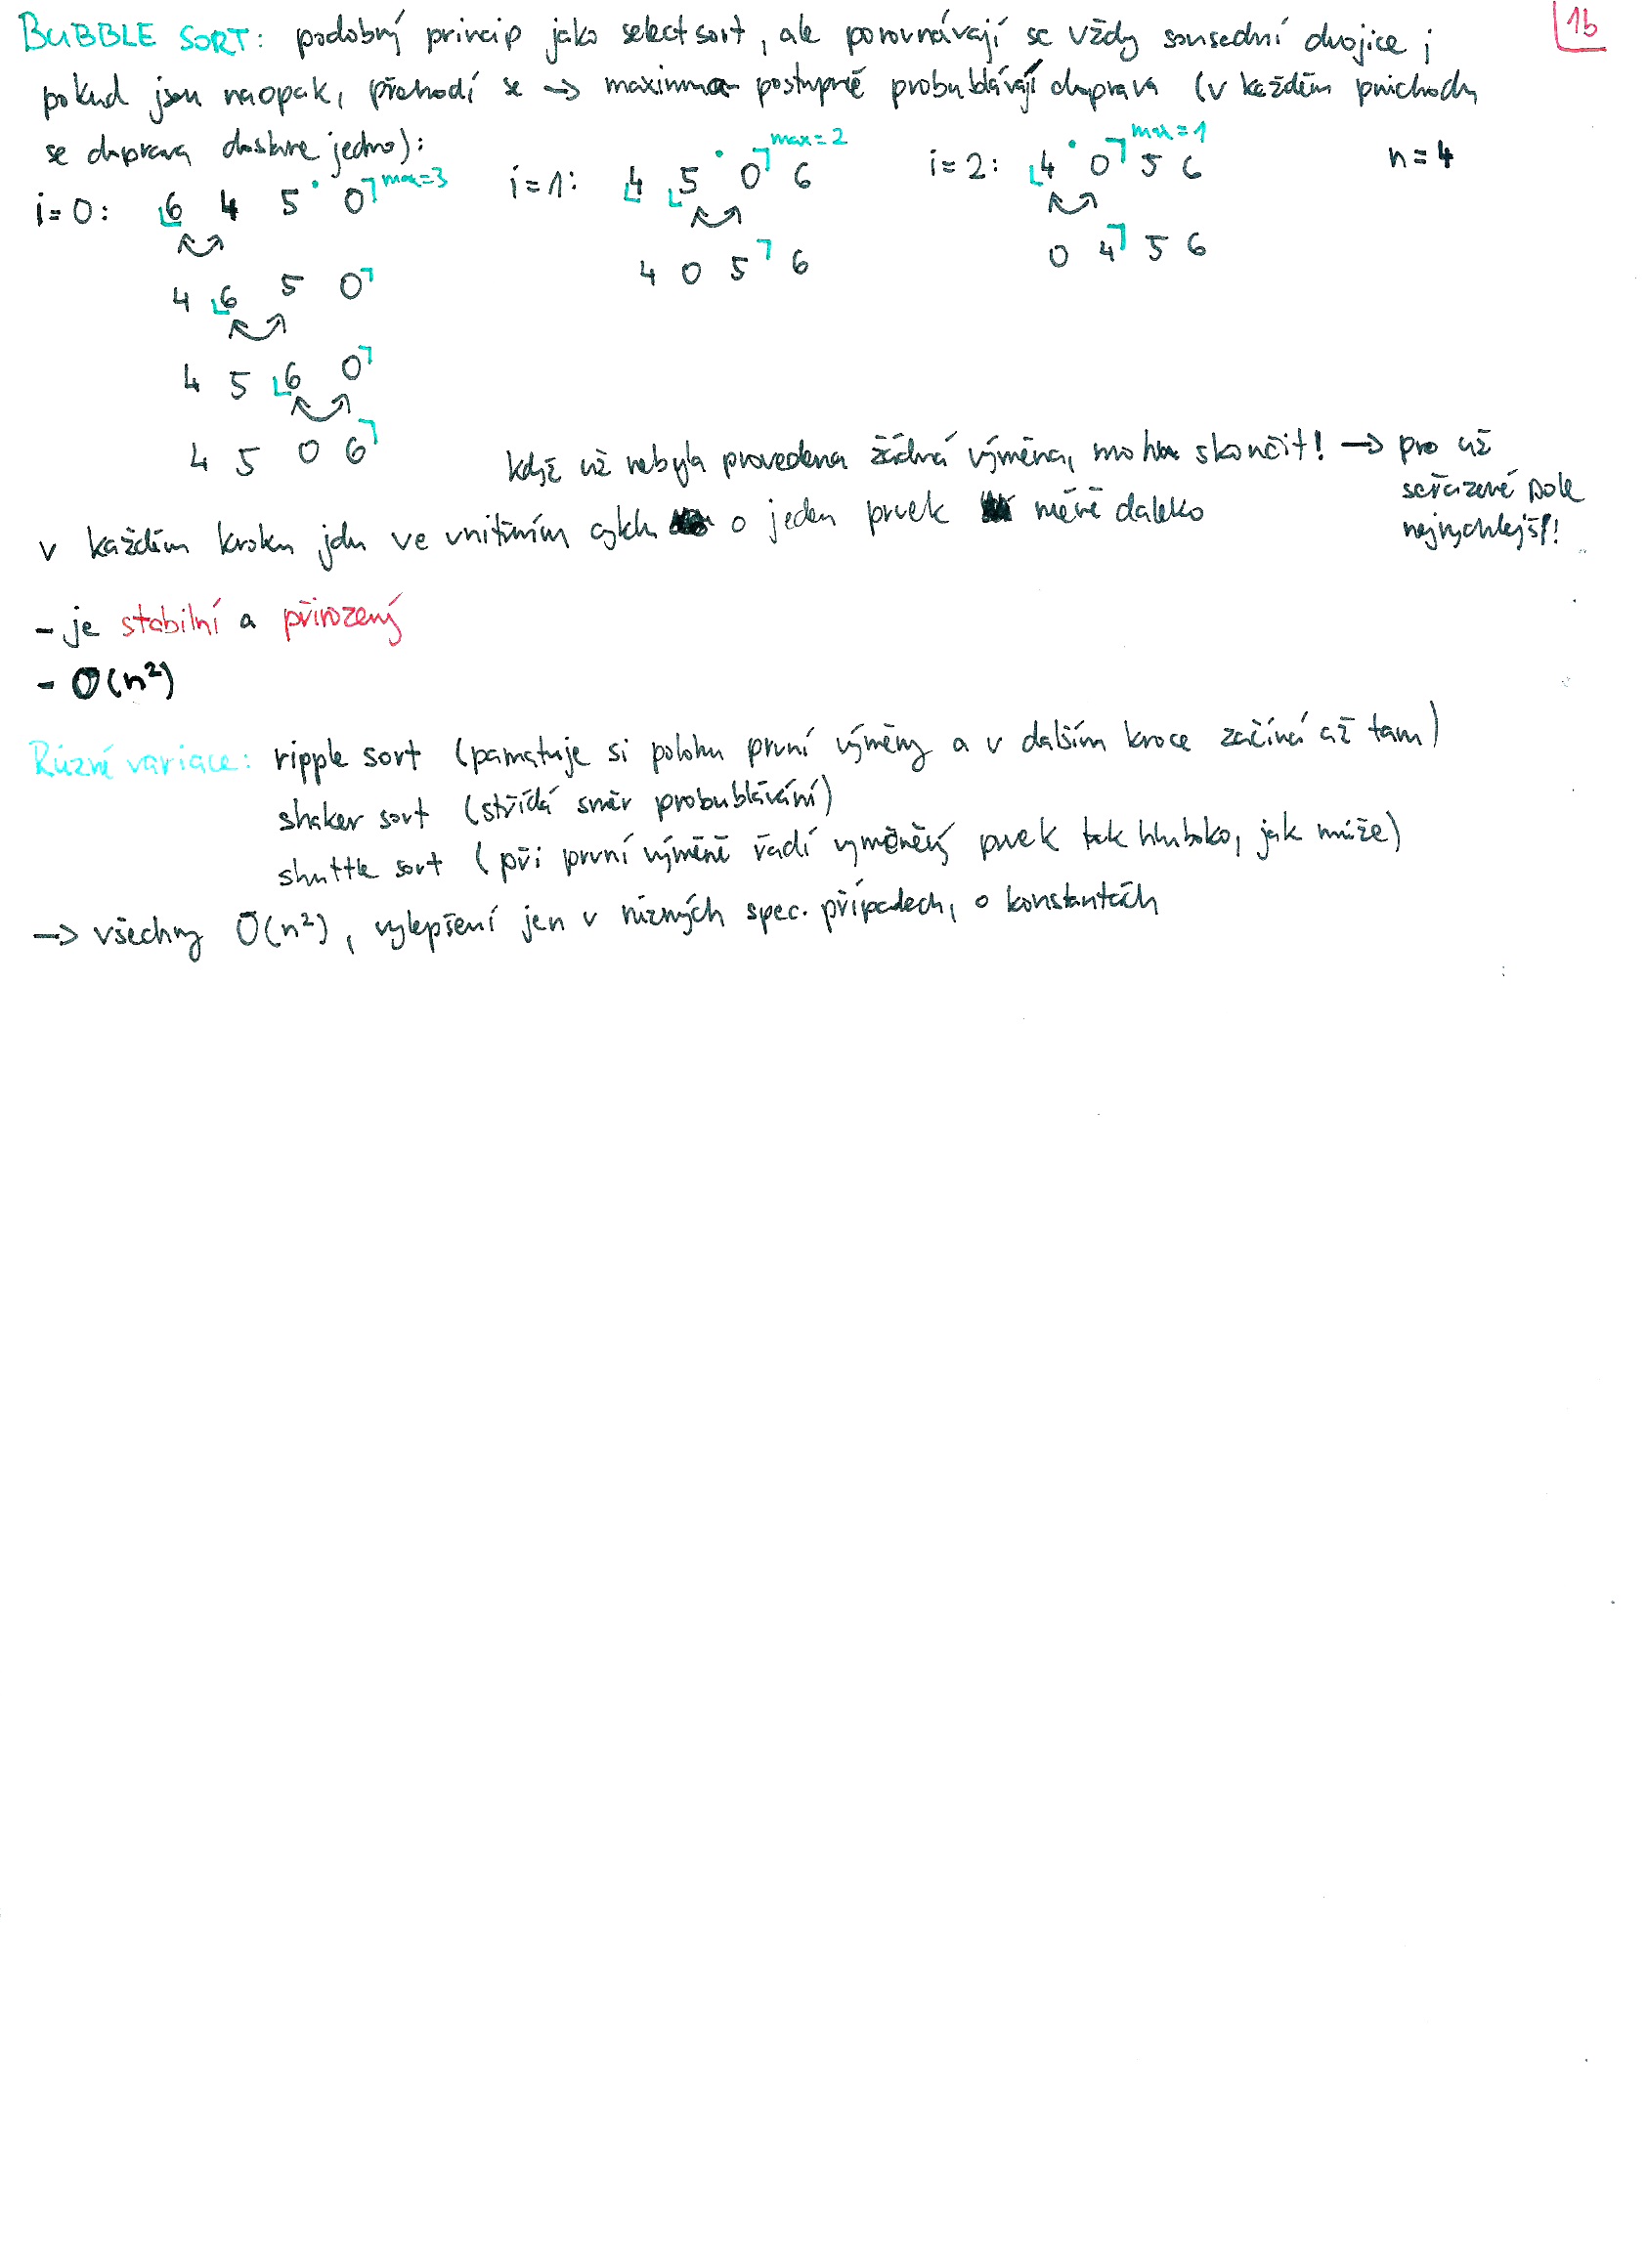 1b
BUBBLE SORT: podobný princip jako selectsort, ale porovnávají se vždy sousední dvojice;
pokud jsou naopak, přehodí se → maxima postupně probublávají doprava (v každém průchodu
se doprava dostane jedno):
n=4
i=0: 6 4 5 0 max=3
4 6 5 0
4 5 6 0
4 5 0 6
i=1: 4 5 0 6 max=2
4 0 5 6
i=2: 4 0 5 6 max=1
0 4 5 6
Když už nebyla provedena žádná výměna, mohu skončit! → pro už
seřazené pole
nejrychlejší!
v každém kroku jdu ve vnitřním cyklu o jeden prvek méně daleko
- je stabilní a přirozený
- O(n²)
Různé variace: ripple sort (pamatuje si polohu první výměny a v dalším kroce začíná až tam)
shaker sort (střídá směr probublávání)
shuttle sort (při první výměně řadí vyměněný prvek tak hluboko, jak může)
→ všechny O(n²), vylepšení jen v různých spec. případech, o konstantách